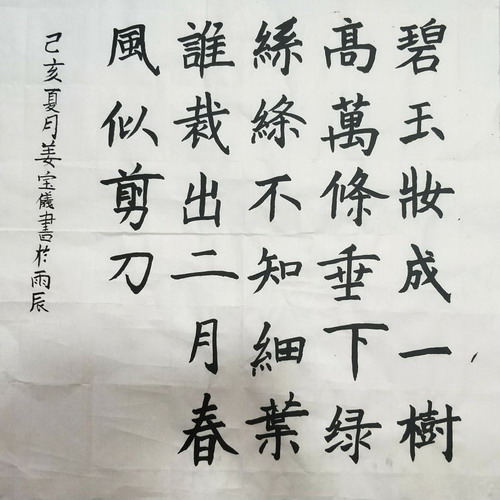 碧玉妝成一樹
高萬條垂下绿
絲絛不知細葉
誰裁出二月春
風似剪刀
己亥夏月姜宝儀書於雨辰